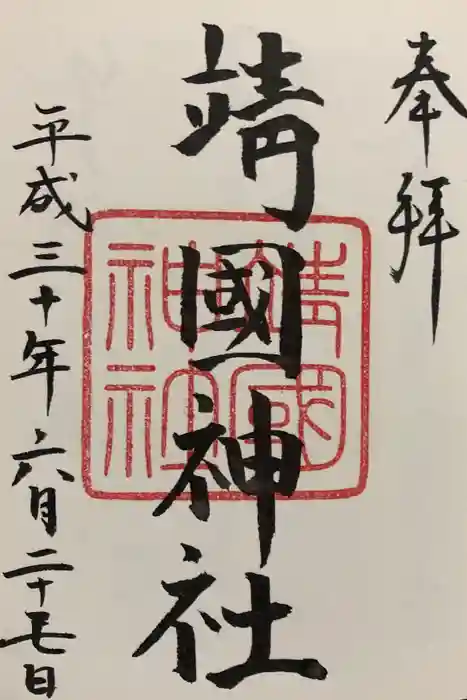 奉拝
靖國神社
靖國
神社
平成三十年六月二十七日